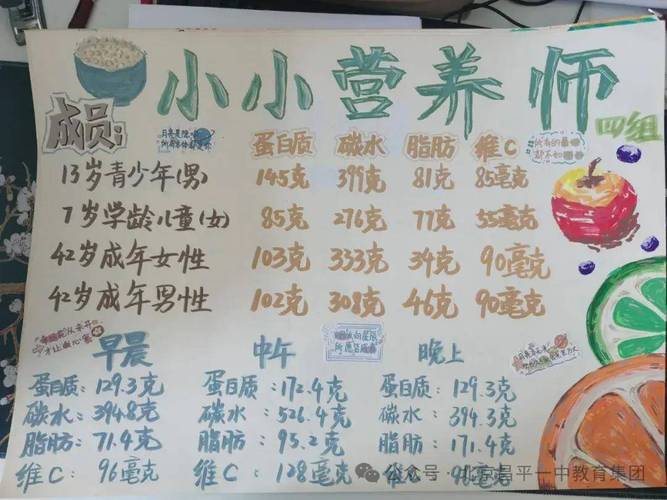 小小营养师
四组
成员:
蛋白质 碳水 脂肪 维C
13岁青少年(男) 145克 399克 81克 85毫克
7岁学龄儿童(女) 85克 276克 77克 55毫克
42岁成年女性 103克 333克 34克 90毫克
42岁成年男性 102克 308克 46克 90毫克
早晨
蛋白质:129.3克
碳水:394.8克
脂肪:71.4克
维C:96毫克
中午
蛋白质:172.4克
碳水:526.4克
脂肪:95.2克
维C:128毫克
晚上
蛋白质:129.3克
碳水:394.3克
脂肪:171.4克
维C:
公众号·北京昌平一中教育集团